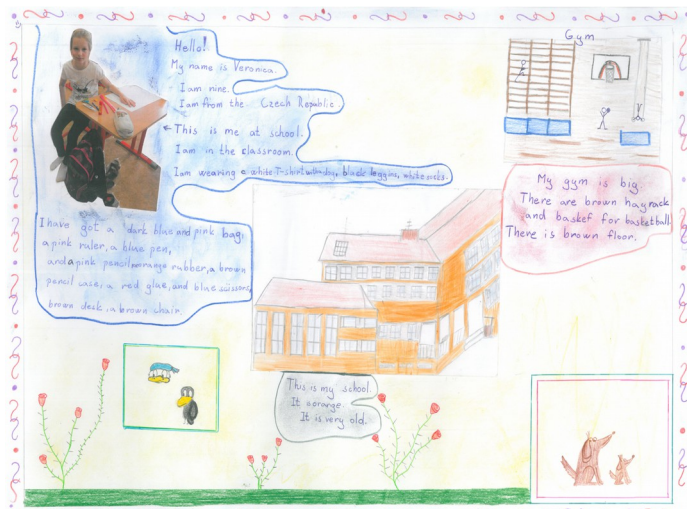 Hello!
My name is Veronica.
I am nine.
I am from the Czech Republic.
This is me at school.
I am in the classroom.
I am wearing a white T-shirt with dog, black leggins, white socks.
I have got a dark blue and pink bag,
a pink ruler, a blue pen,
and a pink pencil, orange rubber, a brown
pencil case, a red glue, and blue scissors,
brown desk, a brown chair.
This is my school.
It is orange.
It is very old.
Gym
My gym is big.
There are brown hayrack
and basket for basketball.
There is brown floor.